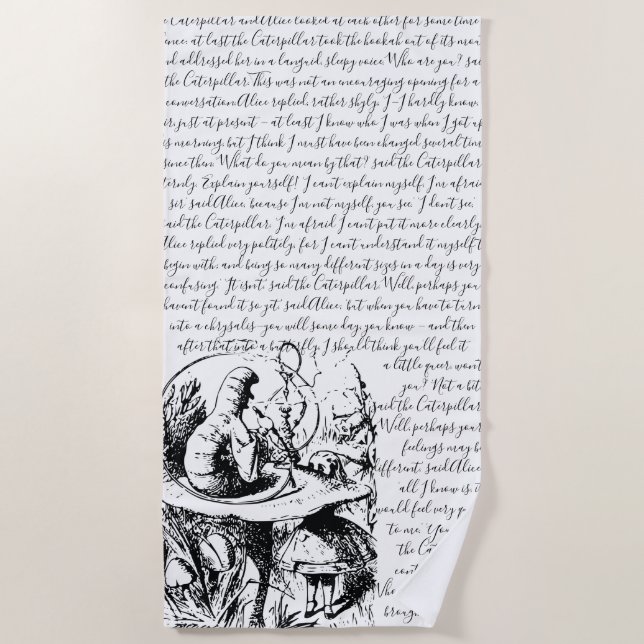 the Caterpillar and Alice looked at each other for some time
ence: at last the Caterpillar took the hookah out of its mou
nd addressed her in a languid, sleepy voice. 'Who are you?' said
the Caterpillar. This was not an encouraging opening for a
conversation. Alice replied, rather shyly, 'I–I hardly know,
ir, just at present – at least I know who I was when I got up
is morning, but I think I must have been changed several time
since then.' 'What do you mean by that?' said the Caterpillar
ternly. 'Explain yourself!' 'I can't explain myself, I'm afraid
sir' said Alice, 'because I'm not myself, you see.' 'I don't see,'
said the Caterpillar. 'I'm afraid I can't put it more clearly,'
Alice replied very politely, 'for I can't understand it myself t
begin with; and being so many different sizes in a day is very
confusing.' 'It isn't,' said the Caterpillar. 'Well, perhaps you
haven't found it so yet,' said Alice; 'but when you have to turn
into a chrysalis–you will some day, you know – and then
after that into a butterfly, I should think you'll feel it
a little queer, won't
you?' 'Not a bit,'
said the Caterpillar.
'Well, perhaps your
feelings may be
different,' said Alice;
all I know is, it
would feel very q
to me.' 'You
the Cat
cont
'Who
brough